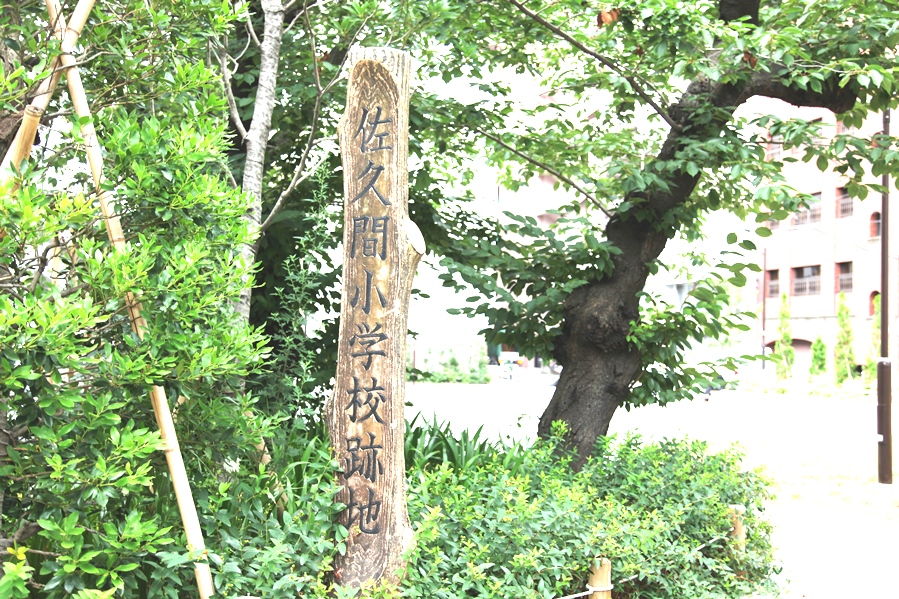 佐久間小学校跡地